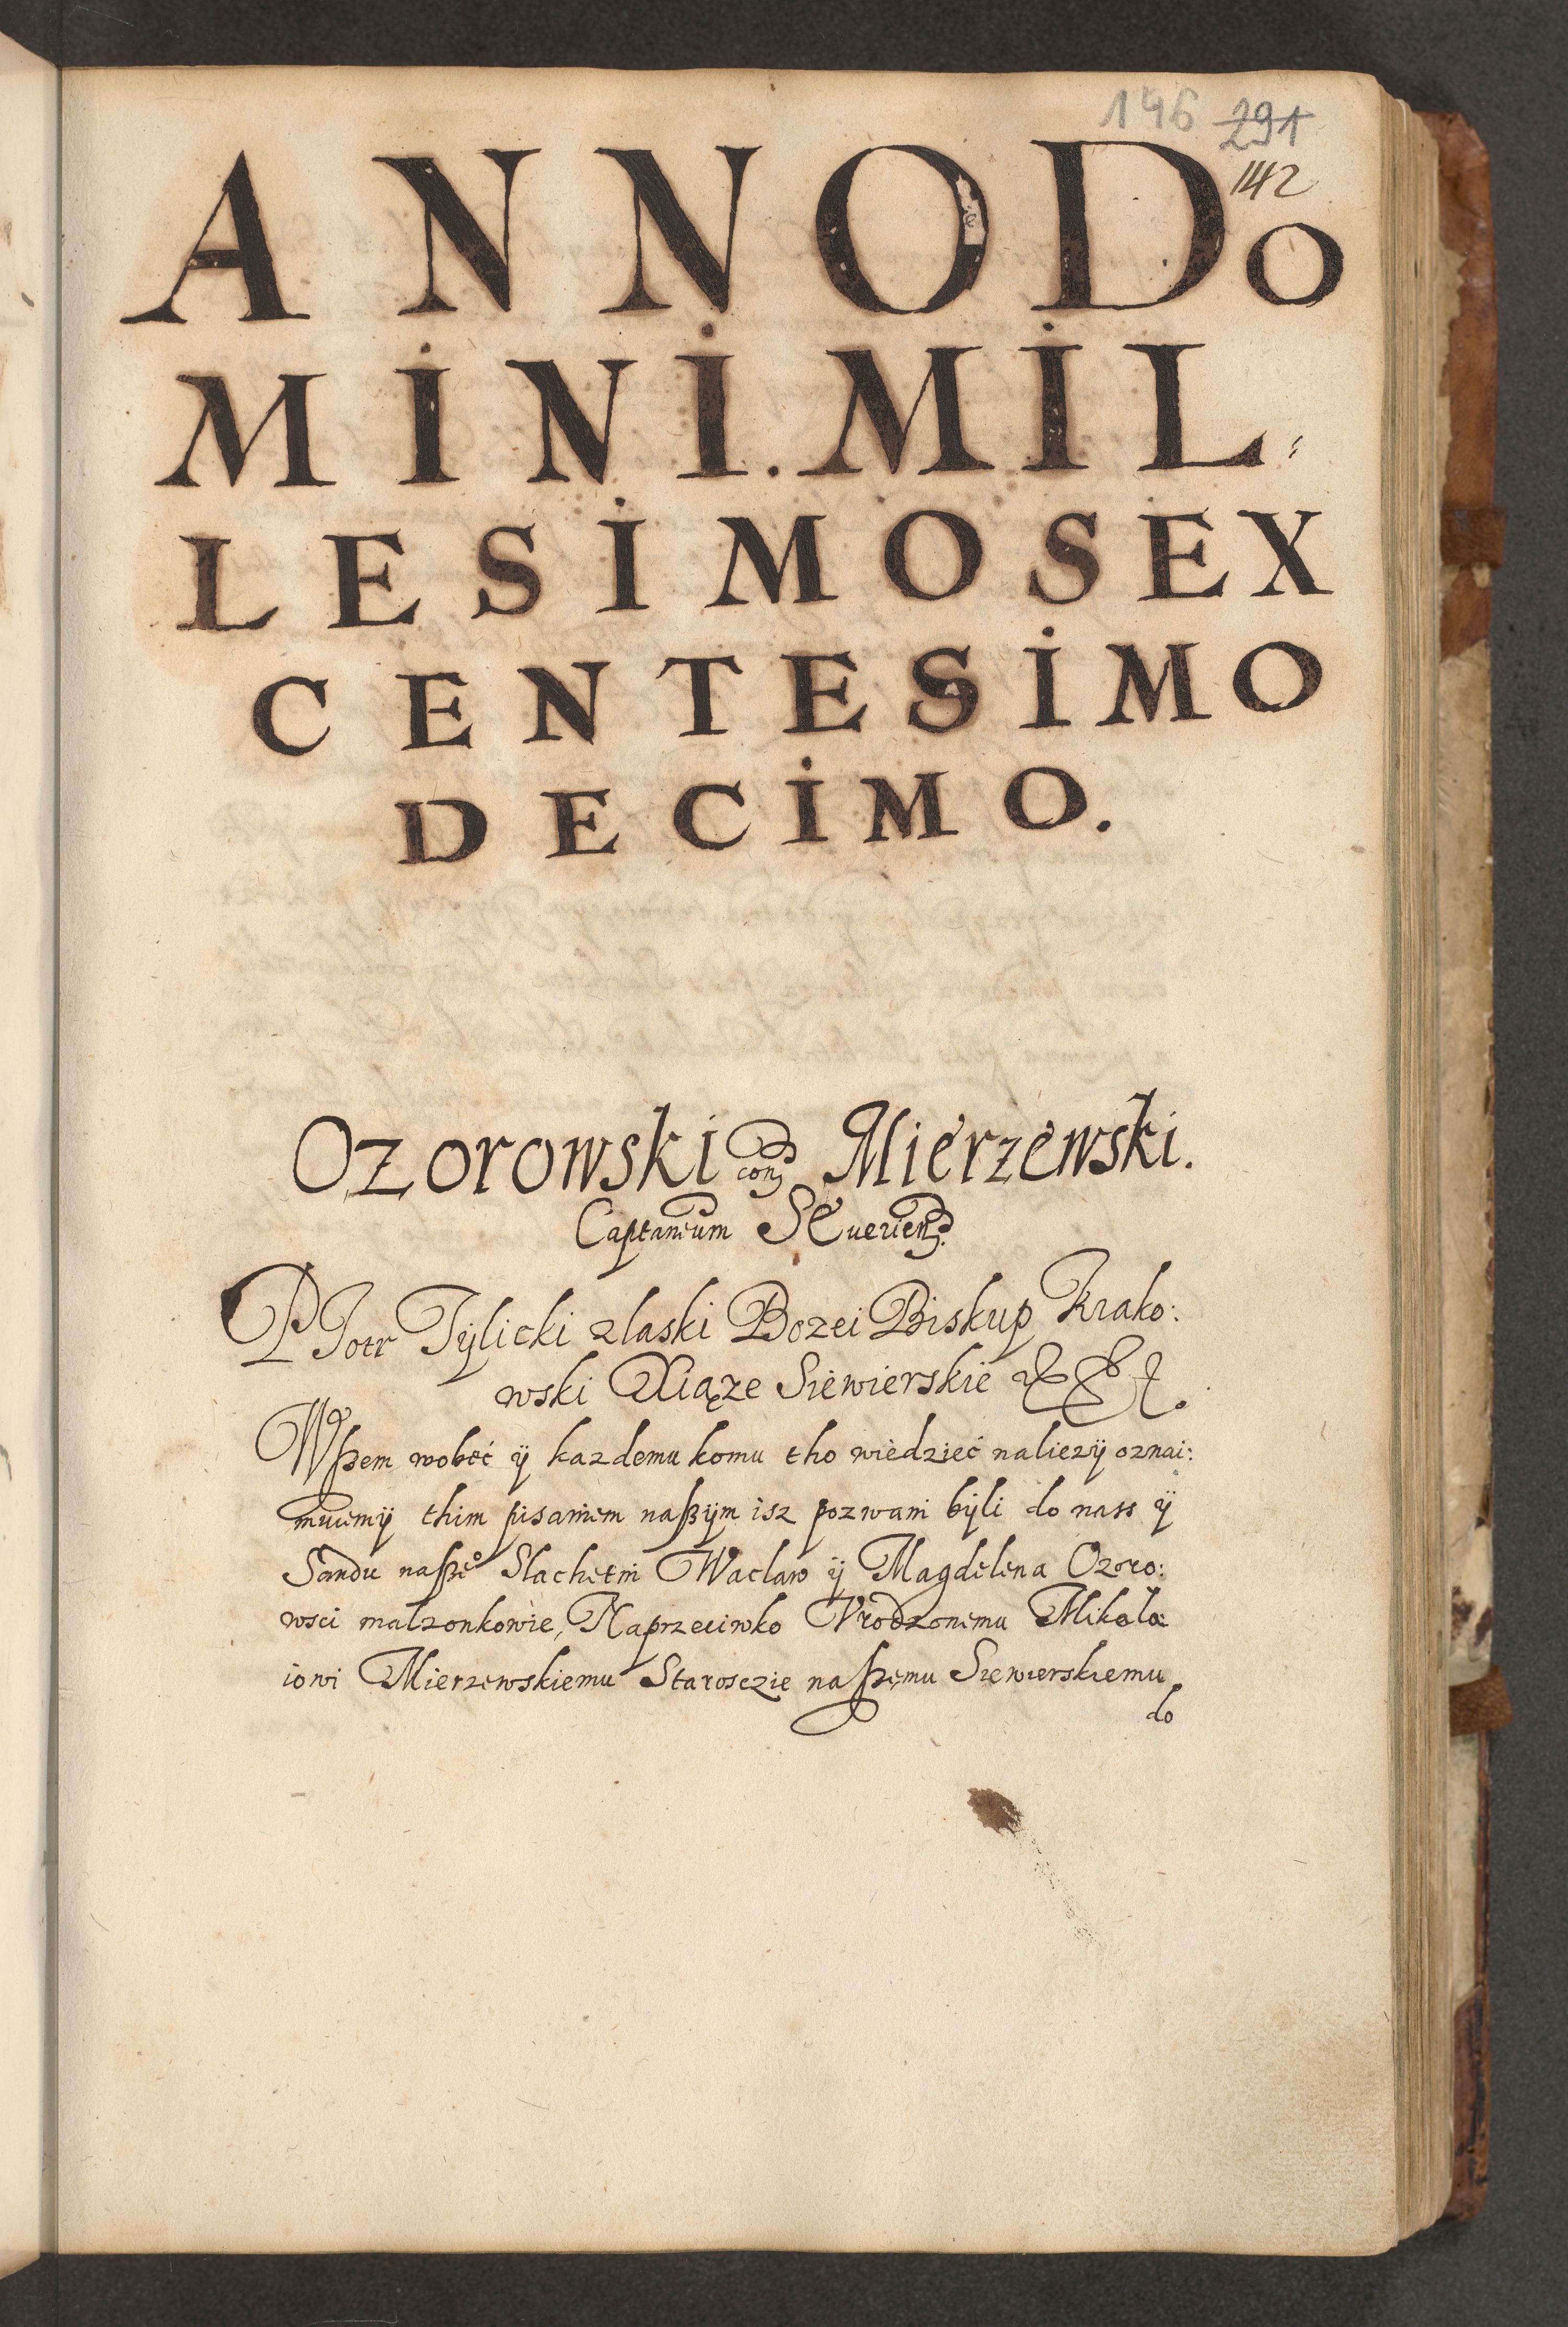 146 291
142
ANNO DO
MINI. MIL
LESIMO SEX
CENTESIMO
DECIMO.
Ozorowski con Mierzewski.
Captaneum SEuerien.
PJotr Tÿlicki zlaski Bozei Biskup Krako:
wski Xiąze Siewierskie
Wßem wobeć ÿ kazdemu komu tho wiedzieć naliezÿ oznai:
muiemÿ thim pisaniem naßÿm isz pozwani bÿli do nass ÿ
Sandu naßeo Slachetni Waclaw ÿ Magdelena Ozoro:
wsci malzonkowie, Naprzeciwko Vrodzonemu Mikola
iowi Mierzewskiemu Starosczie naßemu Siewierskiemu
do